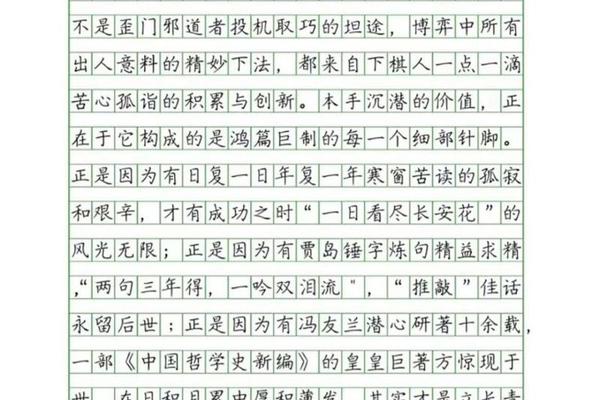 不是歪门邪道者投机取巧的坦途，博弈中所有
出人意料的精妙下法，都来自下棋人一点一滴
苦心孤诣的积累与创新。本手沉潜的价值，正
在于它构成的是鸿篇巨制的每一个细部针脚。
正是因为有日复一日年复一年寒窗苦读的孤寂
和艰辛，才有成功之时“一日看尽长安花”的
风光无限；正是因为有贾岛锤字炼句精益求精
，“两句三年得，一吟双泪流"，“推敲”佳话
永留后世；正是因为有冯友兰潜心研著十余载，
一部《中国哲学史新编》的皇皇巨著方惊现于
世。在日积月累中厚积薄发，其实才是立长青